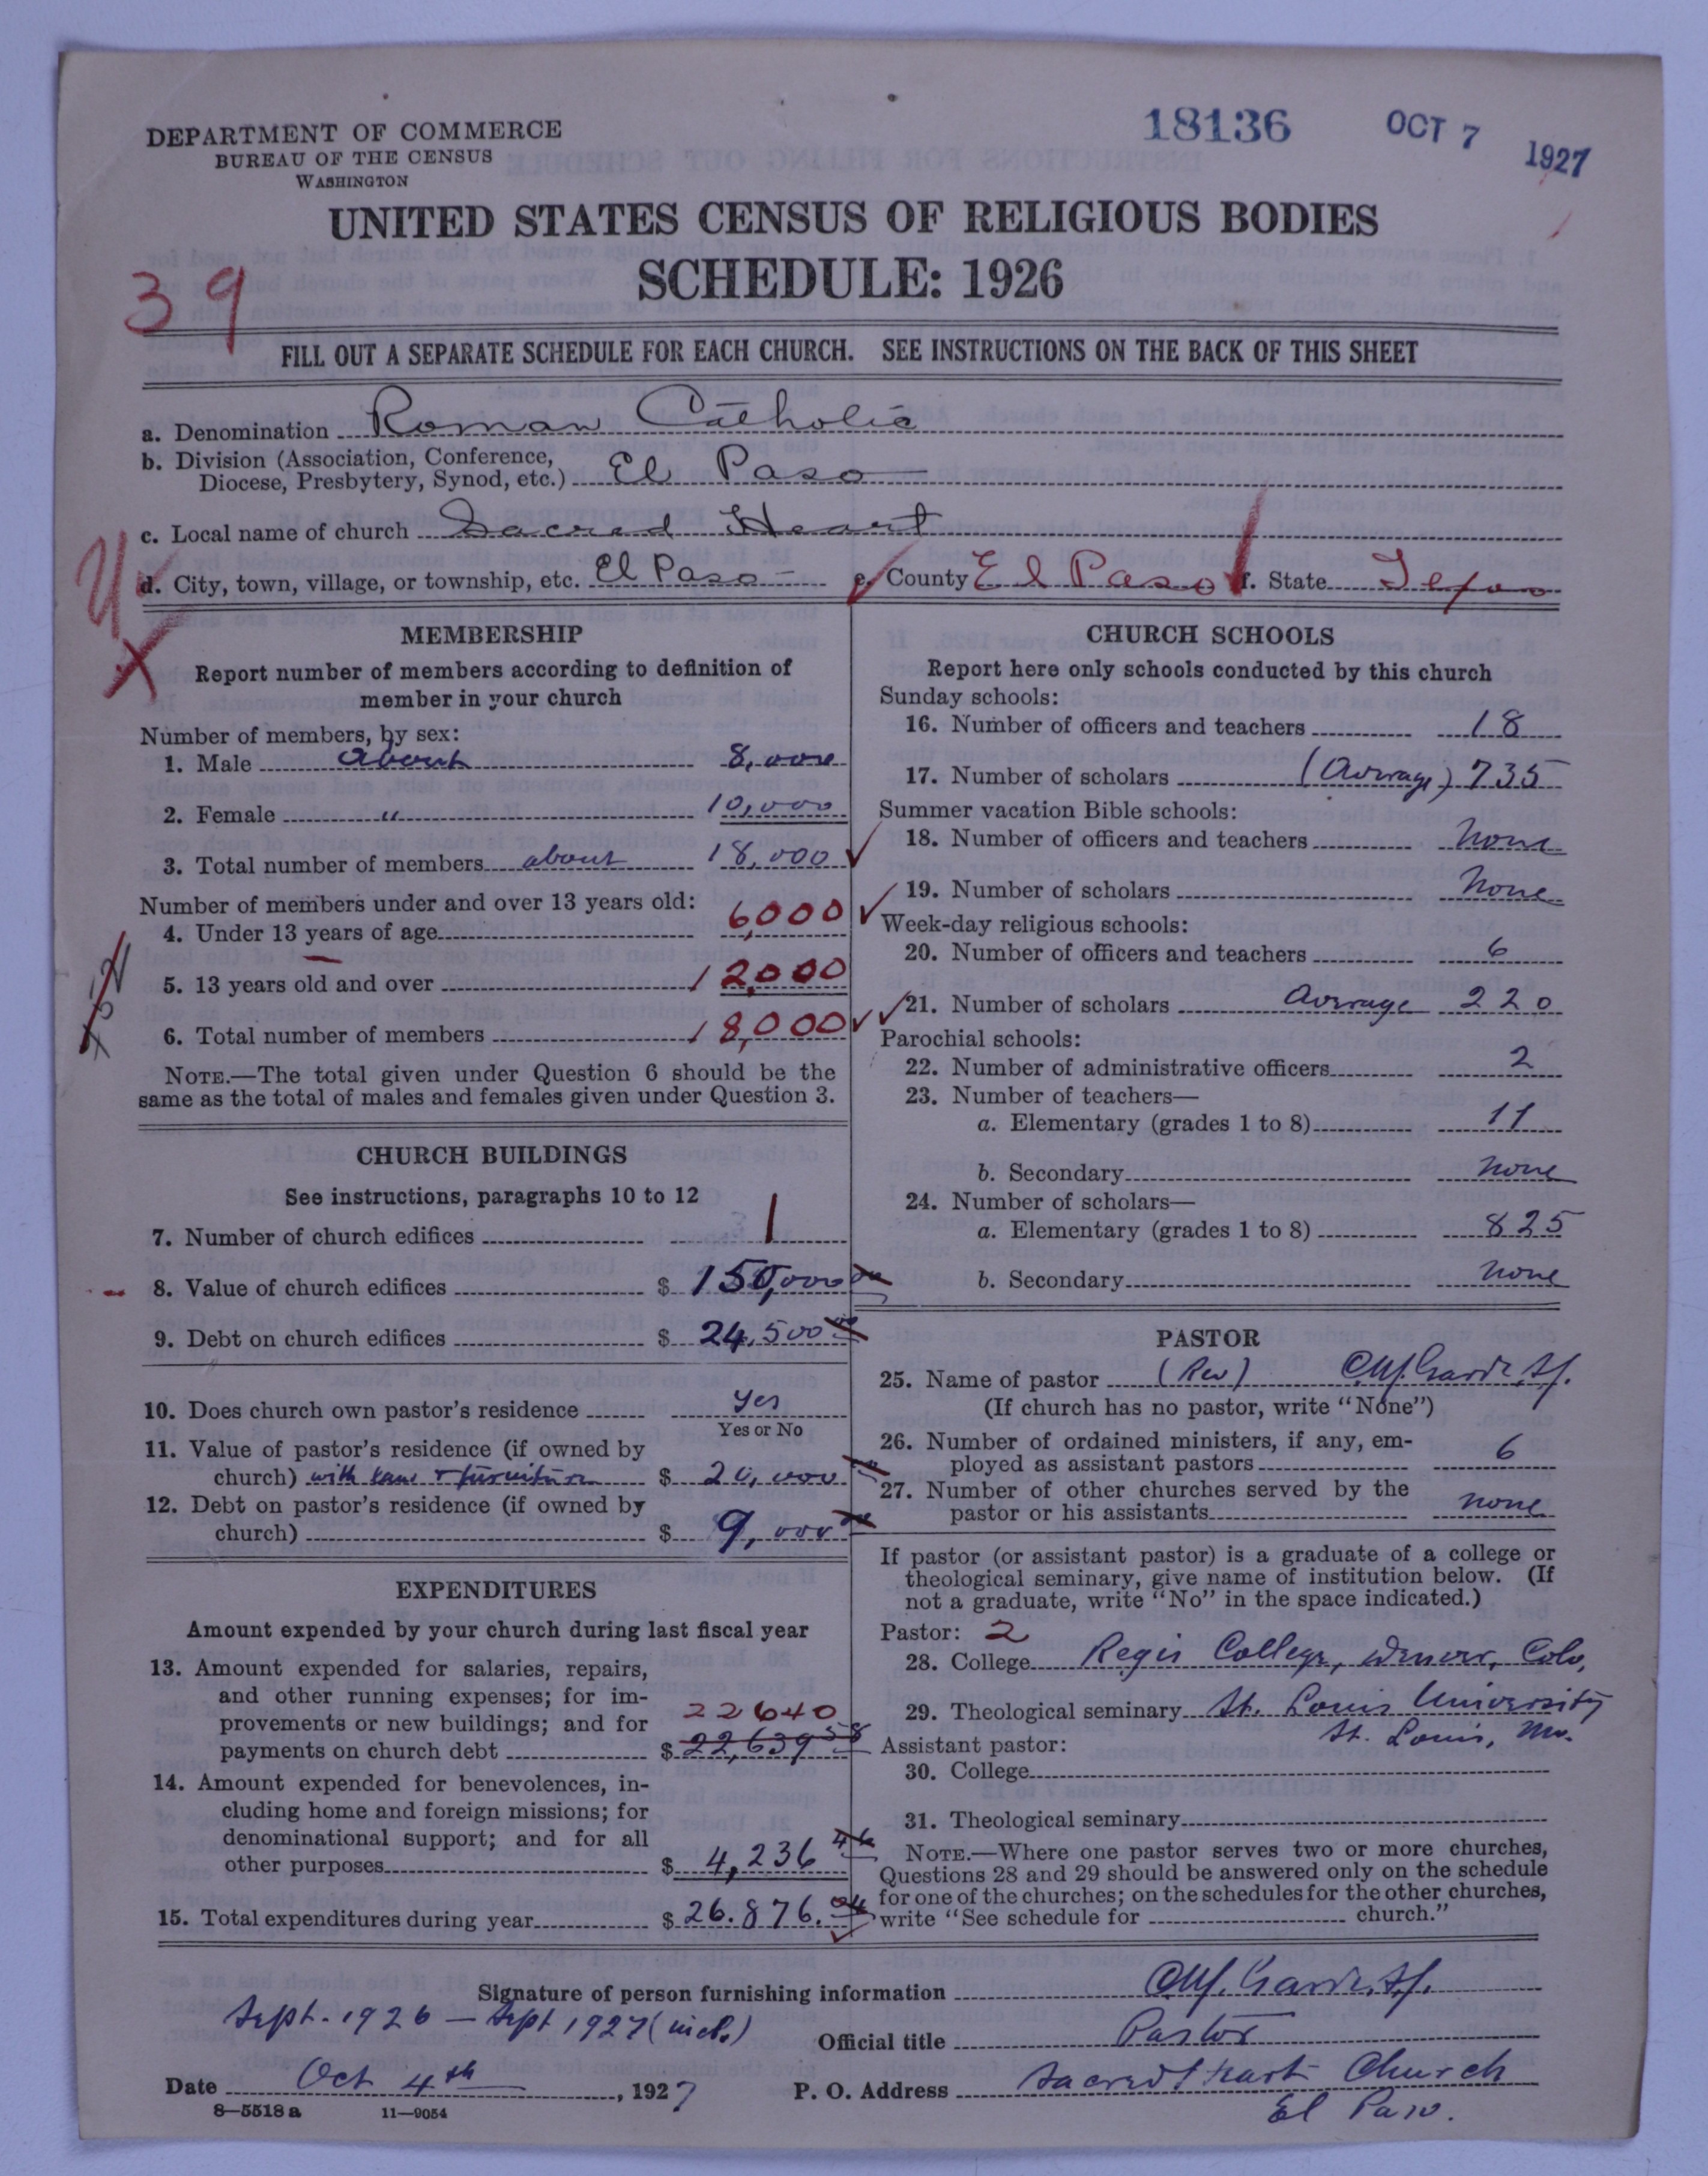 18136 OCT 7 1927
DEPARTMENT OF COMMERCE
BUREAU OF THE CENSUS
WASHINGTON
UNITED STATES CENSUS OF RELIGIOUS BODIES
SCHEDULE: 1926
39
FILL OUT A SEPARATE SCHEDULE FOR EACH CHURCH. SEE INSTRUCTIONS ON THE BACK OF THIS SHEET
a. Denomination Roman Catholic
b. Division (Association, Conference,
Diocese, Presbytery, Synod, etc.) El Paso
c. Local name of church Sacred Heart
d. City, town, village, or township, etc. El Paso e. County El Paso f. State Texas
MEMBERSHIP
Report number of members according to definition of
member in your church
Number of members, by sex:
1. Male about 8,000
2. Female " 10,000
3. Total number of members about 18,000
Number of members under and over 13 years old:
4. Under 13 years of age 6,000
5. 13 years old and over 12,000
6. Total number of members 18,000
NOTE.—The total given under Question 6 should be the
same as the total of males and females given under Question 3.
CHURCH BUILDINGS
See instructions, paragraphs 10 to 12
7. Number of church edifices 1
8. Value of church edifices $ 150,000
9. Debt on church edifices $ 24,500
10. Does church own pastor's residence yes
Yes or No
11. Value of pastor's residence (if owned by
church) with land & furniture $ 20,000
12. Debt on pastor's residence (if owned by
church) $ 9,000
EXPENDITURES
Amount expended by your church during last fiscal year
13. Amount expended for salaries, repairs,
and other running expenses; for im-
provements or new buildings; and for 22640
payments on church debt $ 22,639 58
14. Amount expended for benevolences, in-
cluding home and foreign missions; for
denominational support; and for all
other purposes $ 4,236 46
15. Total expenditures during year $ 26.876.04
CHURCH SCHOOLS
Report here only schools conducted by this church
Sunday schools:
16. Number of officers and teachers 18
17. Number of scholars (Average) 735
Summer vacation Bible schools:
18. Number of officers and teachers None
19. Number of scholars None
Week-day religious schools:
20. Number of officers and teachers 6
21. Number of scholars Average 220
Parochial schools:
22. Number of administrative officers 2
23. Number of teachers—
a. Elementary (grades 1 to 8) 11
b. Secondary None
24. Number of scholars—
a. Elementary (grades 1 to 8) 825
b. Secondary None
PASTOR
25. Name of pastor (Rev) C.M. Garde, S.J.
(If church has no pastor, write "None")
26. Number of ordained ministers, if any, em-
ployed as assistant pastors 6
27. Number of other churches served by the
pastor or his assistants none
If pastor (or assistant pastor) is a graduate of a college or
theological seminary, give name of institution below. (If
not a graduate, write "No" in the space indicated.)
Pastor: 2
28. College Regis College, Denver, Colo,
29. Theological seminary St. Louis University
St. Louis, Mo.
Assistant pastor:
30. College
31. Theological seminary
NOTE.—Where one pastor serves two or more churches,
Questions 28 and 29 should be answered only on the schedule
for one of the churches; on the schedules for the other churches,
write "See schedule for church."
Signature of person furnishing information C.M. Garde, S.J.
Sept. 1926 – Sept 1927 (incl.)
Official title Pastor
Date Oct 4th, 1927 P. O. Address Sacred Heart Church
El Paso.
8—5518 a 11—9054